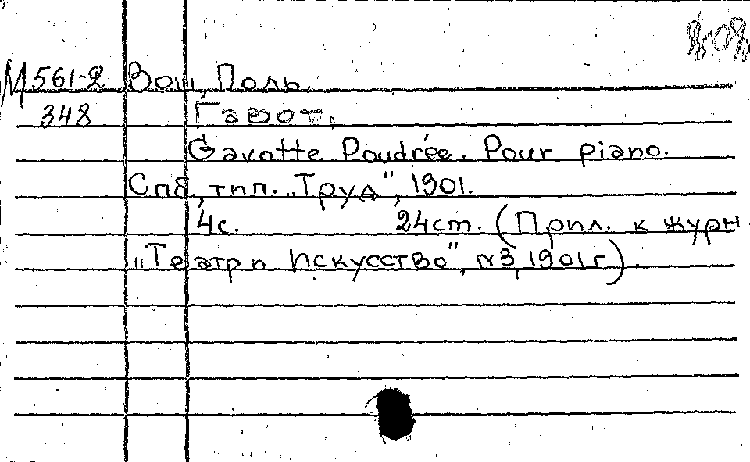 М 561-2 Вош, Поль.
348 Гавот.
Gavotte Poudrée. Pour piano.
Спб, тип. „Труд", 1901.
4с. 24ст. (Прил. к журн.
„Театр и Искусство", №3, 1901г).